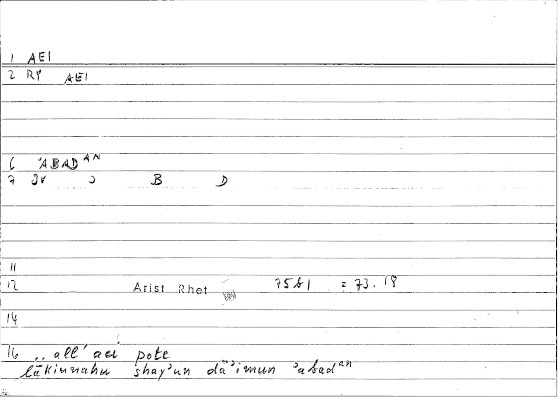 1 AEI
2 RP AEI
6 ʾABADAN
7 ʾ B D
11
12 Arist Rhet 75b1 = 73.18
14
16 .. all' aei pote
lākinnahu shayʾun dāʾimun ʾabadan